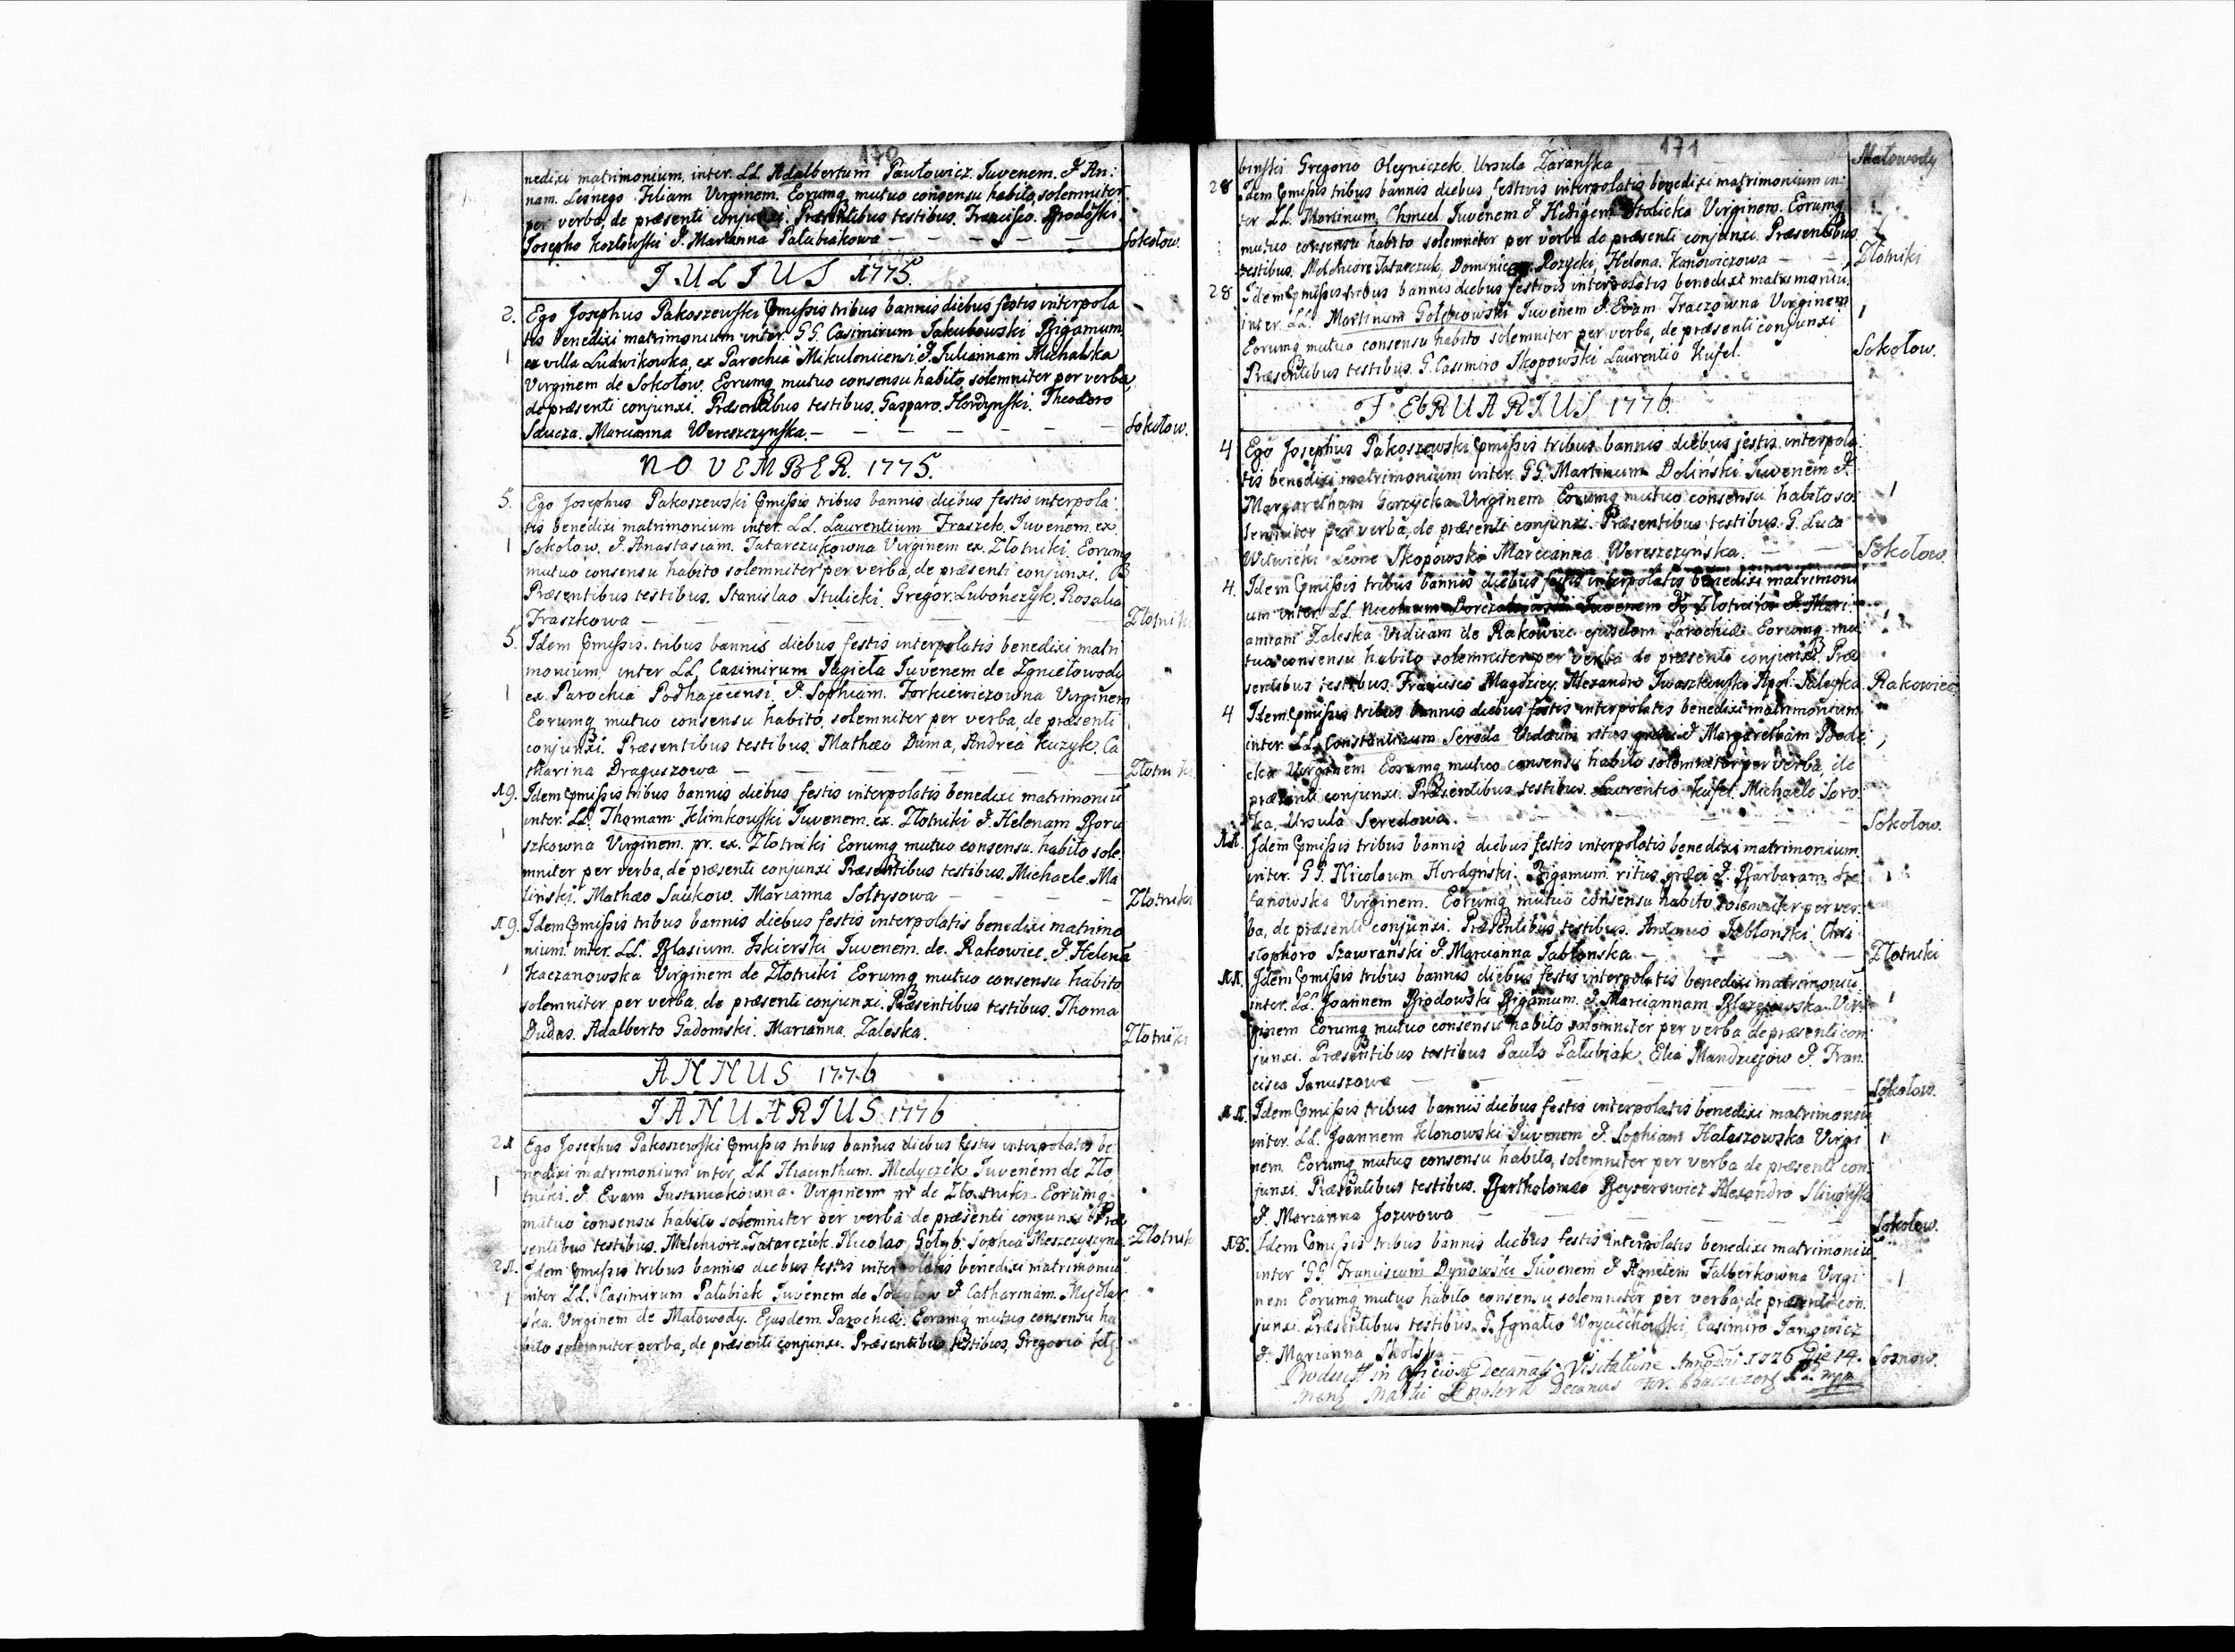 170
nedixi matrimonium. inter. LL. Adalbertum Pawłowicz. Juvenem. & An:
nam. Lesnego. Filiam Virginem. Eorumq mutuo consensu habito, solemniter
per verba, de præsenti conjunxi. Præsentibus testibus. Francisco. Brodoski.
Josepho Kozłowski & Marianna Pałubiakowa — Sokołow.
JULIUS 1775.
2. Ego Josephus Pakoszewski Præmissis tribus bannis diebus festis interpola
tis benedixi matrimonium inter. GG. Casimirum Jakubowski Bigamum
1 ex villa Ludwikowka, ex Parochia Mikulincensi & Juliannam Michalska
Virginem de Sokołow. Eorumq mutuo consensu habito, solemniter per verba,
de præsenti conjunxi. Præsentibus testibus. Gasparo. Hordynski. Theodoro
Marianna Wereszczynska. — Sokołow.
NOVEMBER. 1775.
5. Ego Josephus Pakoszewski Præmissis tribus bannis diebus festis interpola:
tis benedixi matrimonium inter. LL. Laurentium Fraszek. Juvenem. ex.
1 Sokołow. & Anastasiam. Tatarczukowna Virginem ex. Złotniki. Eorumq
mutuo consensu habito solemniter per verba, de præsenti conjunxi.
Præsentibus testibus. Stanislao Stulicki. Gregor. Lubonczyk. Rosalia
Fraszkowa — Złotniki
5. Idem Præmissis. tribus bannis diebus festis interpolatis benedixi matri
monium, inter LL. Casimirum Jagieła Juvenem de Zgniełowody
1 ex. Parochia Podhajecensi & Sophiam. Fortuiewiczowna Virginem
Eorumq mutuo consensu habito, solemniter per verba, de præsenti
conjunxi. Præsentibus testibus. Mathæo Duma, Andrea Kuzyk. Ca
tharina Draguszowa — Złotniki
19. Idem Præmissis tribus bannis diebus festis interpolatis benedixi matrimoniu
inter. LL. Thomam Klimkowski Juvenem. ex. Złotniki & Helenam Boru
1 szkowna Virginem. pr. ex. Złotniki Eorumq mutuo consensu. habito sole
mniter per verba, de præsenti conjunxi Præsentibus testibus. Michaele. Ma
linski. Mathæo Saukow. Marianna Sołtysowa — Złotniki
19. Idem Præmissis tribus bannis diebus festis interpolatis benedixi matrimo
nium. inter. LL. Blasium. Iskierski Juvenem. de. Rakowiec. & Helena
1 Kaczanowska Virginem de Złotniki Eorumq mutuo consensu habito
solemniter per verba, de præsenti conjunxi. Præsentibus testibus. Thoma
Dudas. Adalberto Gadomski. Marianna. Zaleska. Złotniki
ANNUS 1776
JANUARIUS 1776
21 Ego Josephus Pakoszewski Præmissis tribus bannis diebus festis interpolatis be
nedixi matrimonium inter, LL Hiacinthum. Medyczek Juvenem de Zło
1 tniki. & Evam Justiniakowna. Virginem pr de Złotniki. Eorumq
mutuo consensu habito solemniter per verba de præsenti conjunxi Præ
sentibus testibus. Melchiore Tatarczuk. Nicolao Gołyb. Sophia Złotniki
21. Idem Præmissis tribus bannis diebus festis interpolatis benedixi matrimoniu
1 inter LL. Casimirum Pałubiak Juvenem de Sokołow & Catharinam.
ska. Virginem de Małowody. Ejusdem. Parochiæ. Eorumq mutuo consensu ha
bito solemniter verba, de præsenti conjunxi. Præsentibus testibus, Gregorio
171
binski Gregorio Oleyniczek. Ursula Zaranska — Małowody
28 Idem Præmissis tribus bannis diebus festivis interpolatis benedixi matrimonium in:
ter LL. Martinum, Chmiel Juvenem & Hedigem Stalicka Virginem. Eorumq
mutuo consensu habito solemniter per verba de præsenti conjunxi. Præsentibus
testibus. Melchiore Tatarczuk, Dominico Rozycki, Helena. Kanowiczowa — Złotniki
28 Idem Præmissis tribus bannis diebus festivis interpolatis benedixi matrimoniu,
inter. LL. Martinum Juvenem & Evam Traczowna Virginem
Eorumq mutuo consensu habito solemniter per verba, de præsenti conjunxi
Præsentibus testibus. G. Casimiro Skopowski Laurentio Kufel. Sokołow.
FEBRUARIUS 1776
4 Ego Josephus Pakoszewski Præmissis tribus. bannis diebus festis. interpola
tis benedixi matrimonium inter. GG. Martinum Dolinski Juvenem &
Margaretham Gorzycka Virginem Eorumq mutuo consensu habito so
lemniter per verba, de præsenti conjunxi. Præsentibus testibus. G. Luca
Witwicki Leone Skopowski Marianna Wereszczynska. — Sokołow
4. Idem Præmissis tribus bannis diebus festis interpolatis benedixi matrimoni
um inter. LL Juvenem & Mari
annam Zaleska Viduam de Rakowiec ejusdem Parochiæ Eorumq mu
tuo consensu habito solemniter per verba de præsenti conjunxi Præ
sentibus testibus. Francisco Magdziey. Alexandro Iwaszkowski Apol. Zaleska Rakowiec
4 Idem Præmissis tribus bannis diebus festis interpolatis benedixi matrimonium
inter. LL. Constantinum Sereda Viduum ritus græci & Margaretham
Virginem Eorumq mutuo consensu habito solemniter per verba, de
præsenti conjunxi. Præsentibus testibus. Laurentio Kufel. Michaele Soro
ka, Ursula Seredowa. — Sokołow.
11. Idem Præmissis tribus bannis diebus festis interpolatis benedixi matrimonium.
inter. GG. Nicolaum Hordynski. Bigamum ritus græci & Barbaram Ste
fanowska Virginem. Eorumq mutuo consensu habito solemniter per ver
ba, de præsenti conjunxi. Præsentibus testibus. Antonio Jablonski. Chri
stophoro Szawranski & Marianna Jabłonska — Złotniki
11. Idem Præmissis tribus bannis diebus festis interpolatis benedixi matrimoniu
inter. LL. Joannem Brodowski Bigamum. & Mariannam Błazejowska Vir
ginem Eorumq mutuo consensu habito solemniter per verba de præsenti con
junxi. Præsentibus testibus Paulo Pałubiak. Elia Mandziejow & Fran
cisca Januszowa — Sokołow.
11. Idem Præmissis tribus bannis diebus festis interpolatis benedixi matrimoniu
inter. LL. Joannem Klonowski Juvenem & Sophiam Hałaszowska Virgi
nem. Eorumq mutuo consensu habito, solemniter per verba de præsenti con
junxi. Præsentibus testibus. Bartholomæo Beyzerowicz Alexandro
& Marianna Jozwowa — Sokołow.
18. Idem Præmissis tribus bannis diebus festis interpolatis benedixi matrimoniu
inter GG. Franciscum Dynowski Juvenem & Agnetem Falberkowna Virgi
nem Eorumq mutuo habito consensu solemniter per verba, de præsenti con
junxi. Præsentibus testibus. G. Ignatio Woyciechowski, Casimiro Janowicz
& Marianna Skolska — Sosnow.
Product in Officiosa Decanali Visitatione Anno Dni 1776 Die 14.
Mens Martii Decanus